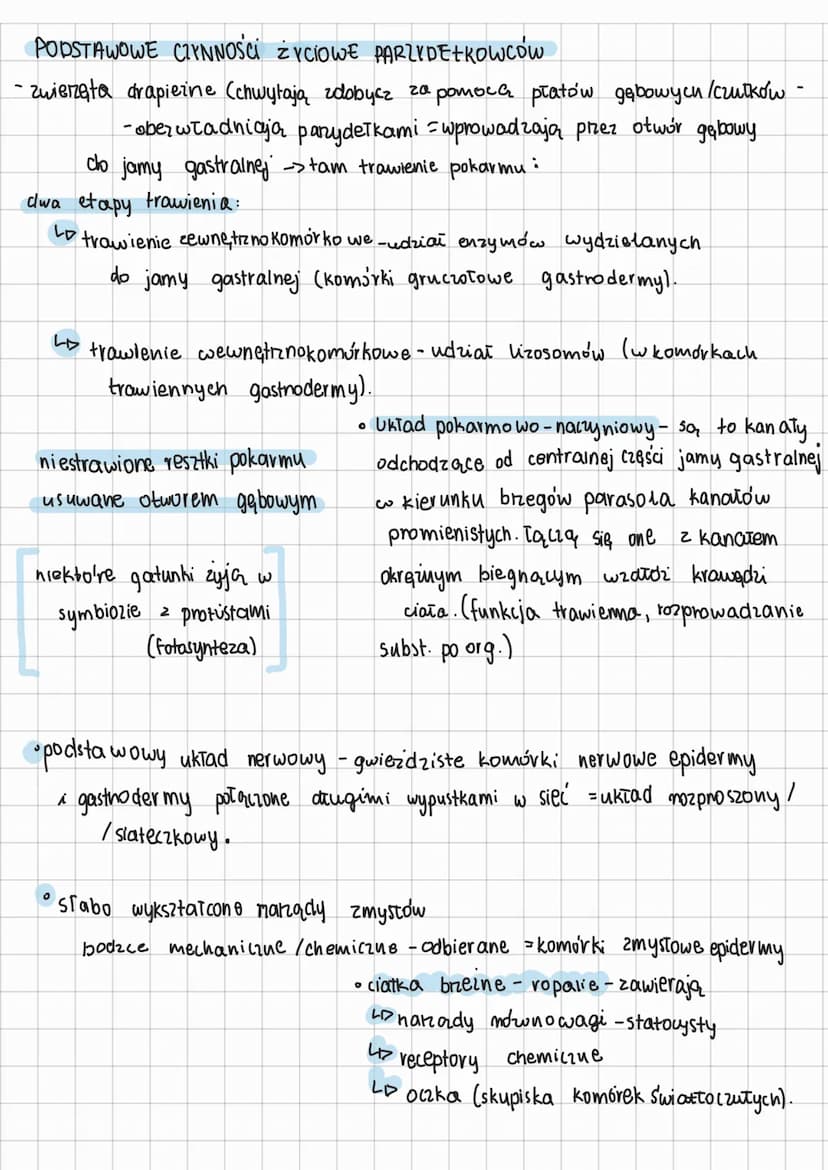 PODSTAWOWE CZYNNOŚCI ŻYCIOWE PARZYDEŁKOWCÓW
- zwierzęta drapieżne (chwytają zdobycz za pomocą płatów gębowych/czułków -
- obezwładniają parzydełkami = wprowadzają przez otwór gębowy
do jamy gastralnej -> tam trawienie pokarmu:
dwa etapy trawienia:
↳ trawienie zewnętrznokomórkowe - udział enzymów wydzielanych
do jamy gastralnej (komórki gruczołowe gastrodermy).
↳ trawienie wewnątrznokomórkowe - udział lizosomów (w komórkach
trawiennych gastrodermy).
niestrawione resztki pokarmu
usuwane otworem gębowym
[niektóre gatunki żyją w
symbiozie z protistami
(fotosynteza)]
• układ pokarmowo - naczyniowy - są to kanały
odchodzące od centralnej części jamy gastralnej
w kierunku brzegów parasola kanałów
promienistych. Łączą się one z kanałem
okrężnym biegnącym wzdłóż krawędzi
ciała. (funkcja trawienna, rozprowadzanie
subst. po org.)
• podstawowy układ nerwowy - gwieździste komórki nerwowe epidermy
i gastrodermy połączone długimi wypustkami w sieć = układ rozproszony/
/siateczkowy.
• słabo wykształcone narządy zmysłów
bodźce mechaniczne/chemiczne - odbierane = komórki zmysłowe epidermy
• ciałka brzeżne - ropalie - zawierają
↳ narządy równowagi - statocysty
↳ receptory chemiczne
↳ oczka (skupiska komórek światłoczułych).